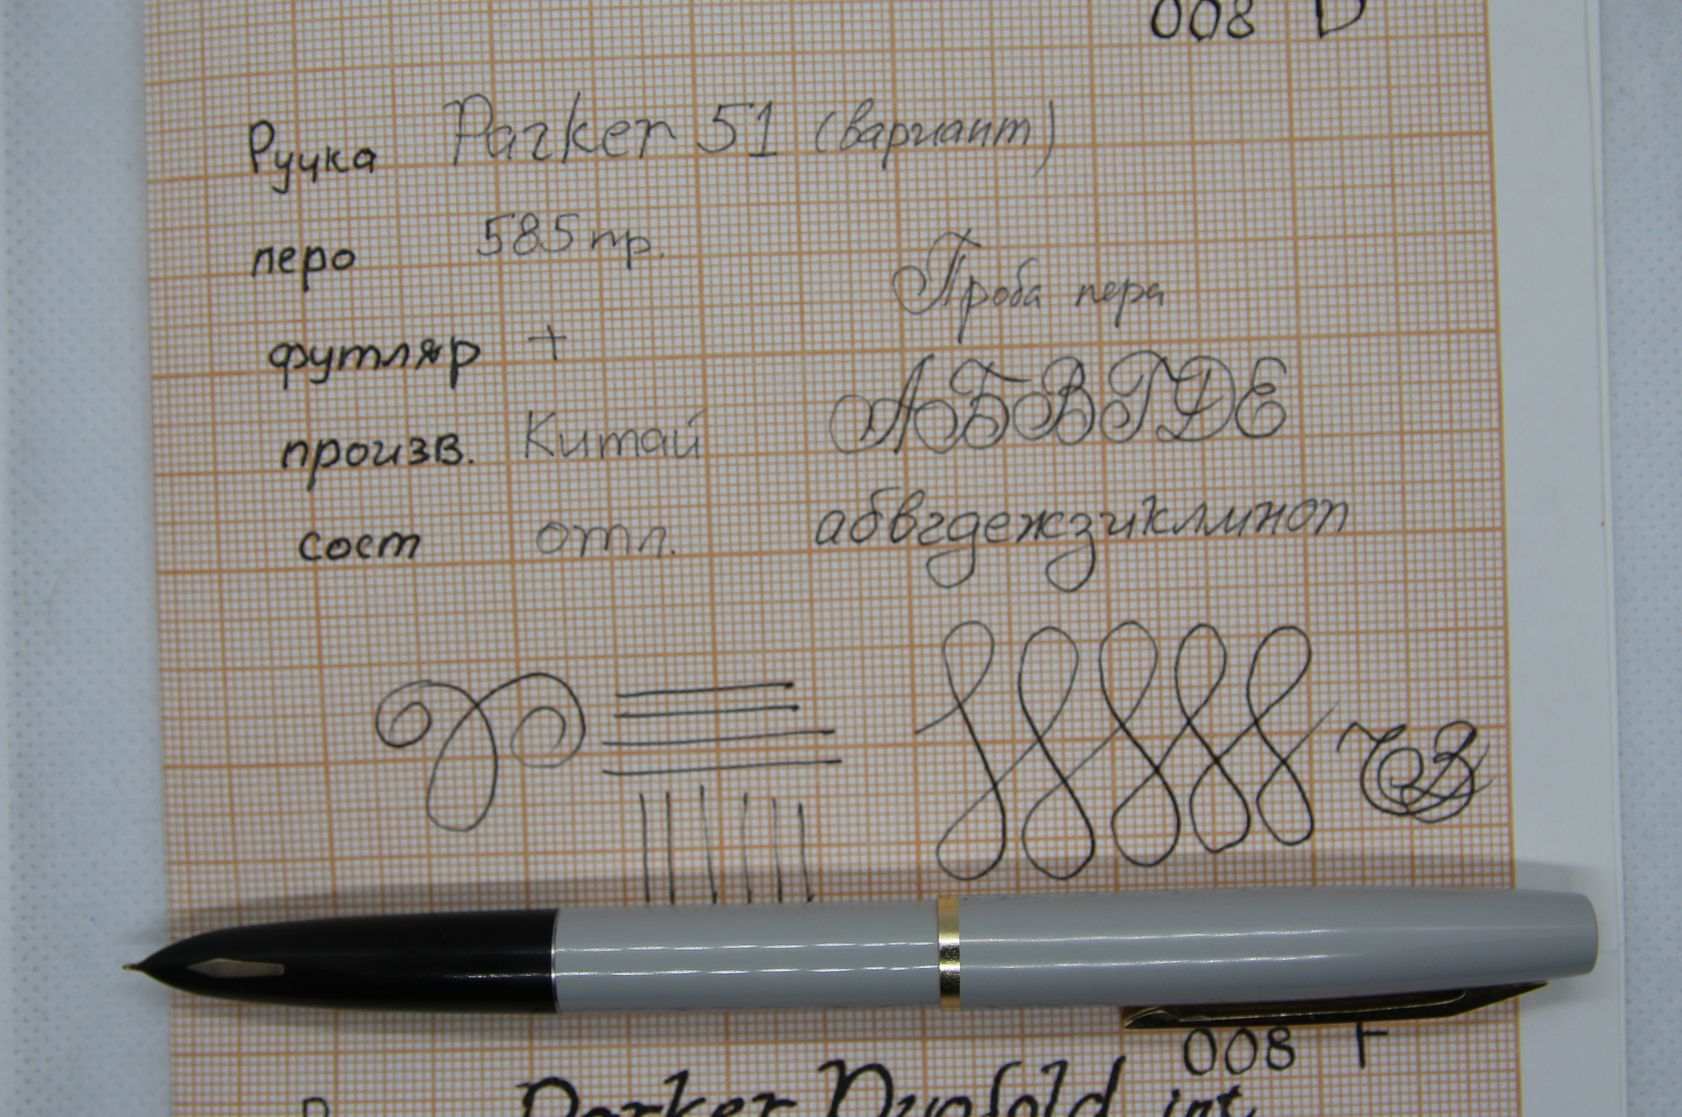 008 D
Ручка Parker 51 (вариант)
перо 585 пр.
Проба пера
футляр +
АБВГДЕ
произв. Китай
сост отл.
абвгдежзиклмноп
008 F
Parker Duofold int.